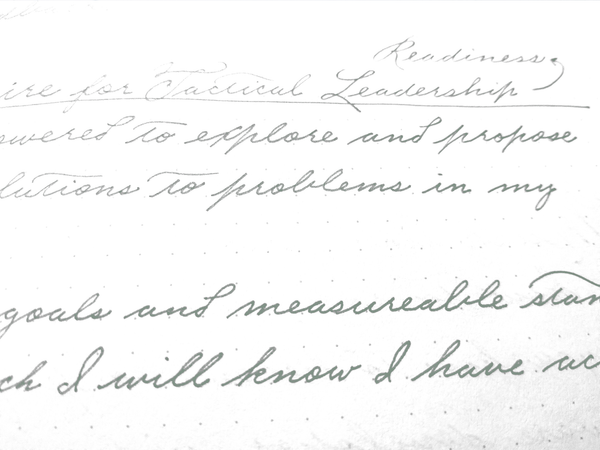 Readiness
ire for Tactical Leadership
owered to explore and propose
lutions to problems in my
goals and measureable stan
ch I will know I have ac